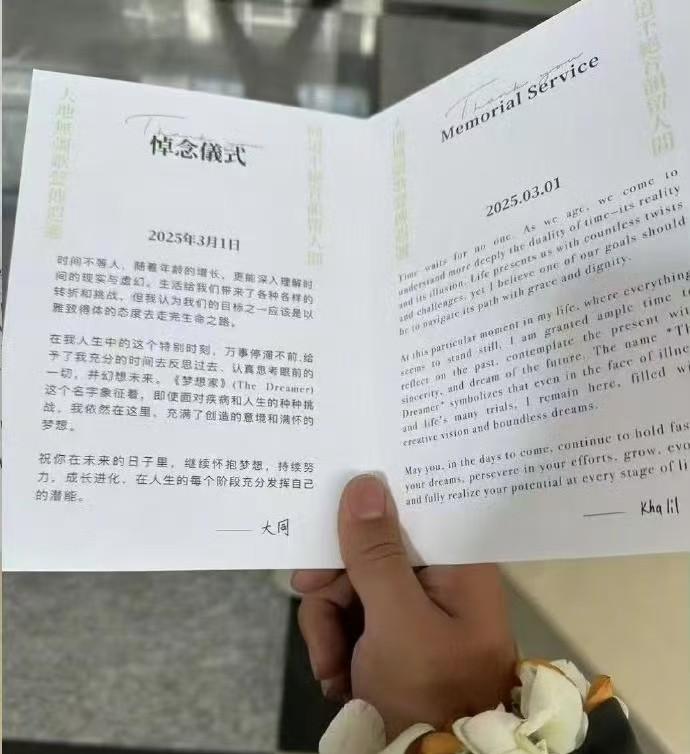 Thank you
悼念儀式
2025年3月1日
时间不等人，随着年龄的增长，更能深入理解时
间的现实与虚幻。生活给我们带来了各种各样的
转折和挑战，但我认为我们的目标之一应该是以
雅致得体的态度去走完生命之路。
在我人生中的这个特别时刻，万事停滞不前，给
予了我充分的时间去反思过去、认真思考眼前的
一切，并幻想未来。《梦想家》(The Dreamer)
这个名字象征着，即使面对疾病和人生的种种挑
战，我依然在这里，充满了创造的意境和满怀的
梦想。
祝你在未来的日子里，继续怀抱梦想，持续努
力，成长进化，在人生的每个阶段充分发挥自己
的潜能。
—— 大同
Thank you
Memorial Service
道不絕音韻留人間
2025.03.01
Time waits for no one. As we age, we come to
understand more deeply the duality of time—its reality
and its illusion. Life presents us with countless twists
and challenges, yet I believe one of our goals should
be to navigate its path with grace and dignity.
At this particular moment in my life, where everything
seems to stand still, I am granted ample time to
reflect on the past, contemplate the present wit
sincerity, and dream of the future. The name "Th
Dreamer" symbolizes that even in the face of illnes
and life's many trials, I remain here, filled w
creative vision and boundless dreams.
May you, in the days to come, continue to hold fas
your dreams, persevere in your efforts, grow, evo
and fully realize your potential at every stage of li
—— Khalil